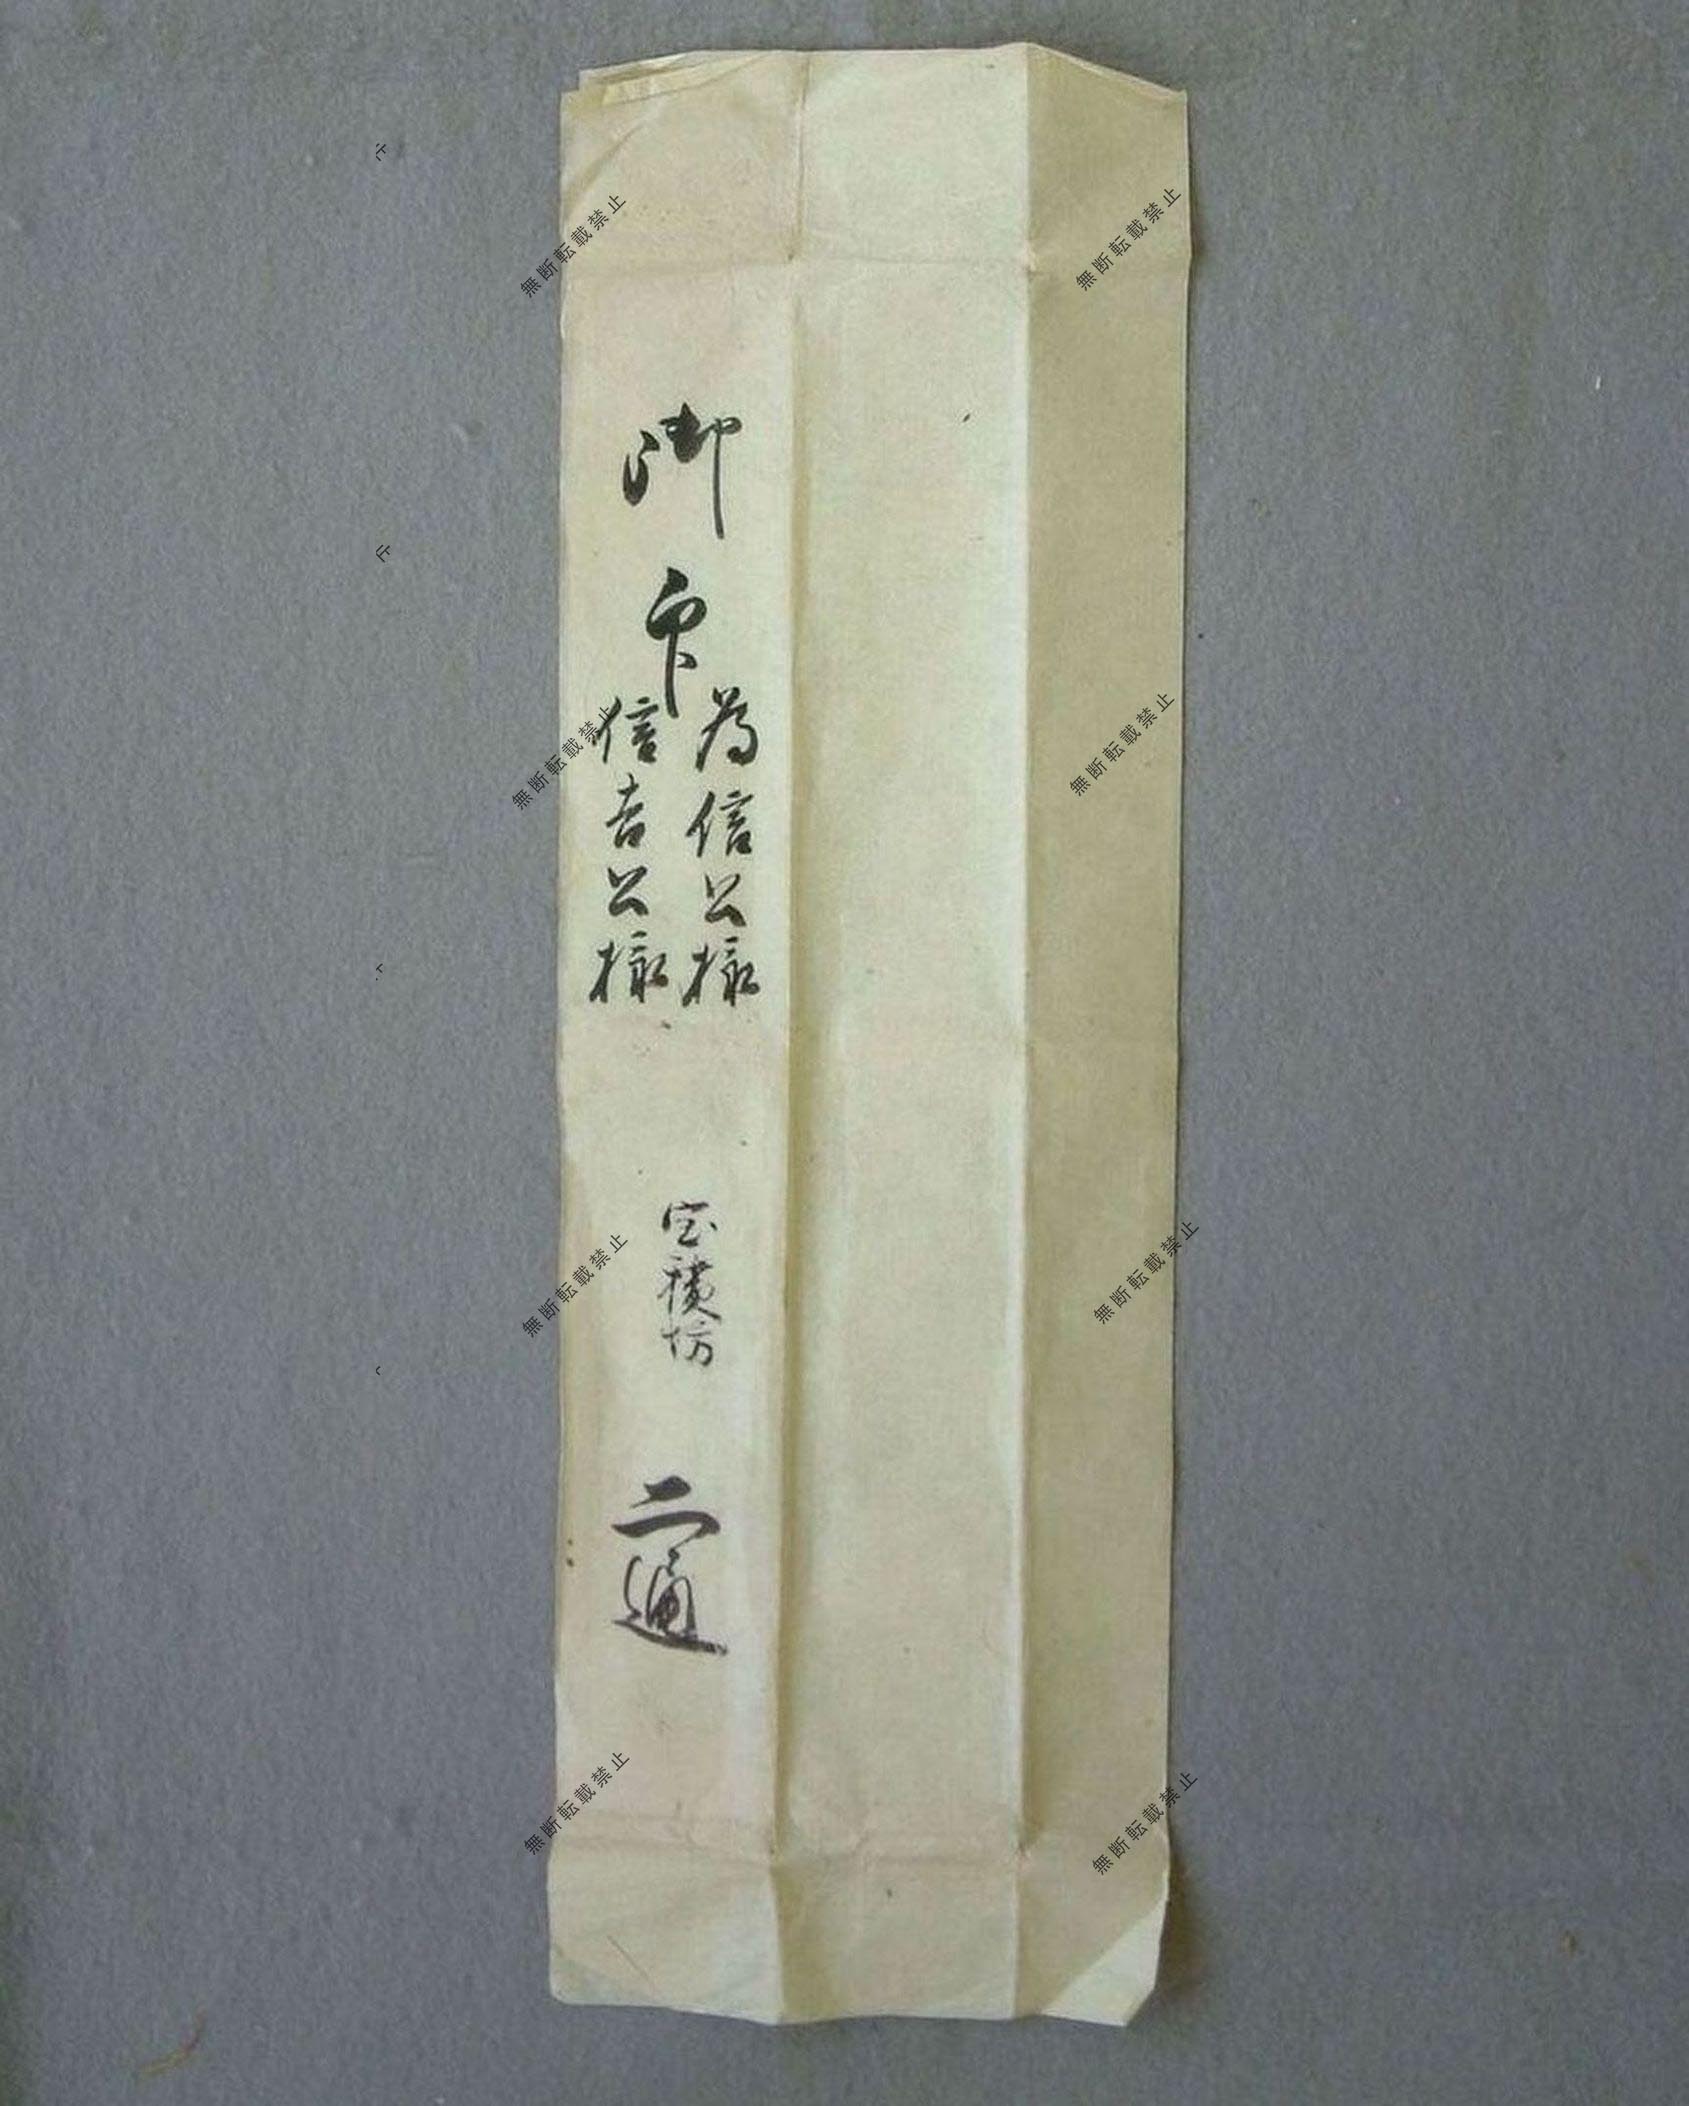 御印
為信公様
信吉公様
宝積坊
二通
無断転載禁止
無断転載禁止
無断転載禁止
無断転載禁止
無断転載禁止
無断転載禁止
無断転載禁止
無断転載禁止